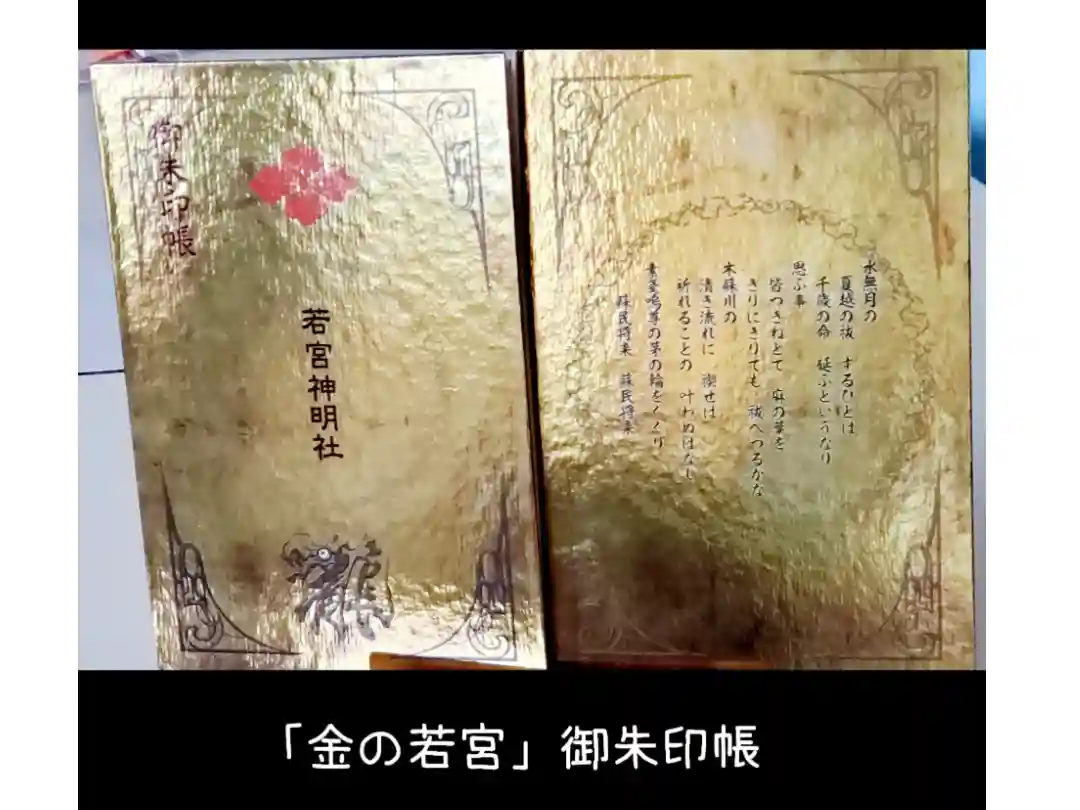 御朱印帳
若宮神明社
水無月の
夏越の祓 するひとは
千歳の命 延ぶというなり
思ふ事
皆つきねとて 麻の葉を
きりにきりても 祓へつるかな
木蘇川の
清き流れに 禊せば
祈れることの 叶わぬはなし
素盞嗚尊の茅の輪をくぐり
蘇民将来 蘇民将来
「金の若宮」御朱印帳